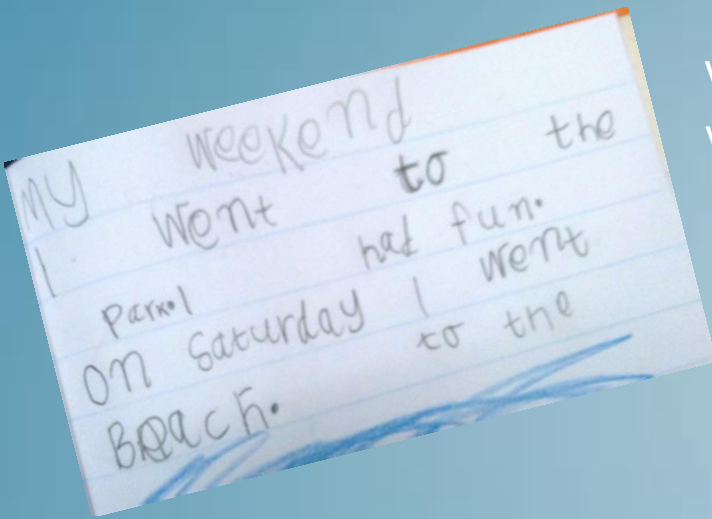 My weekend
I went to the
park. I had fun.
on Saturday I went
to the
Beach.